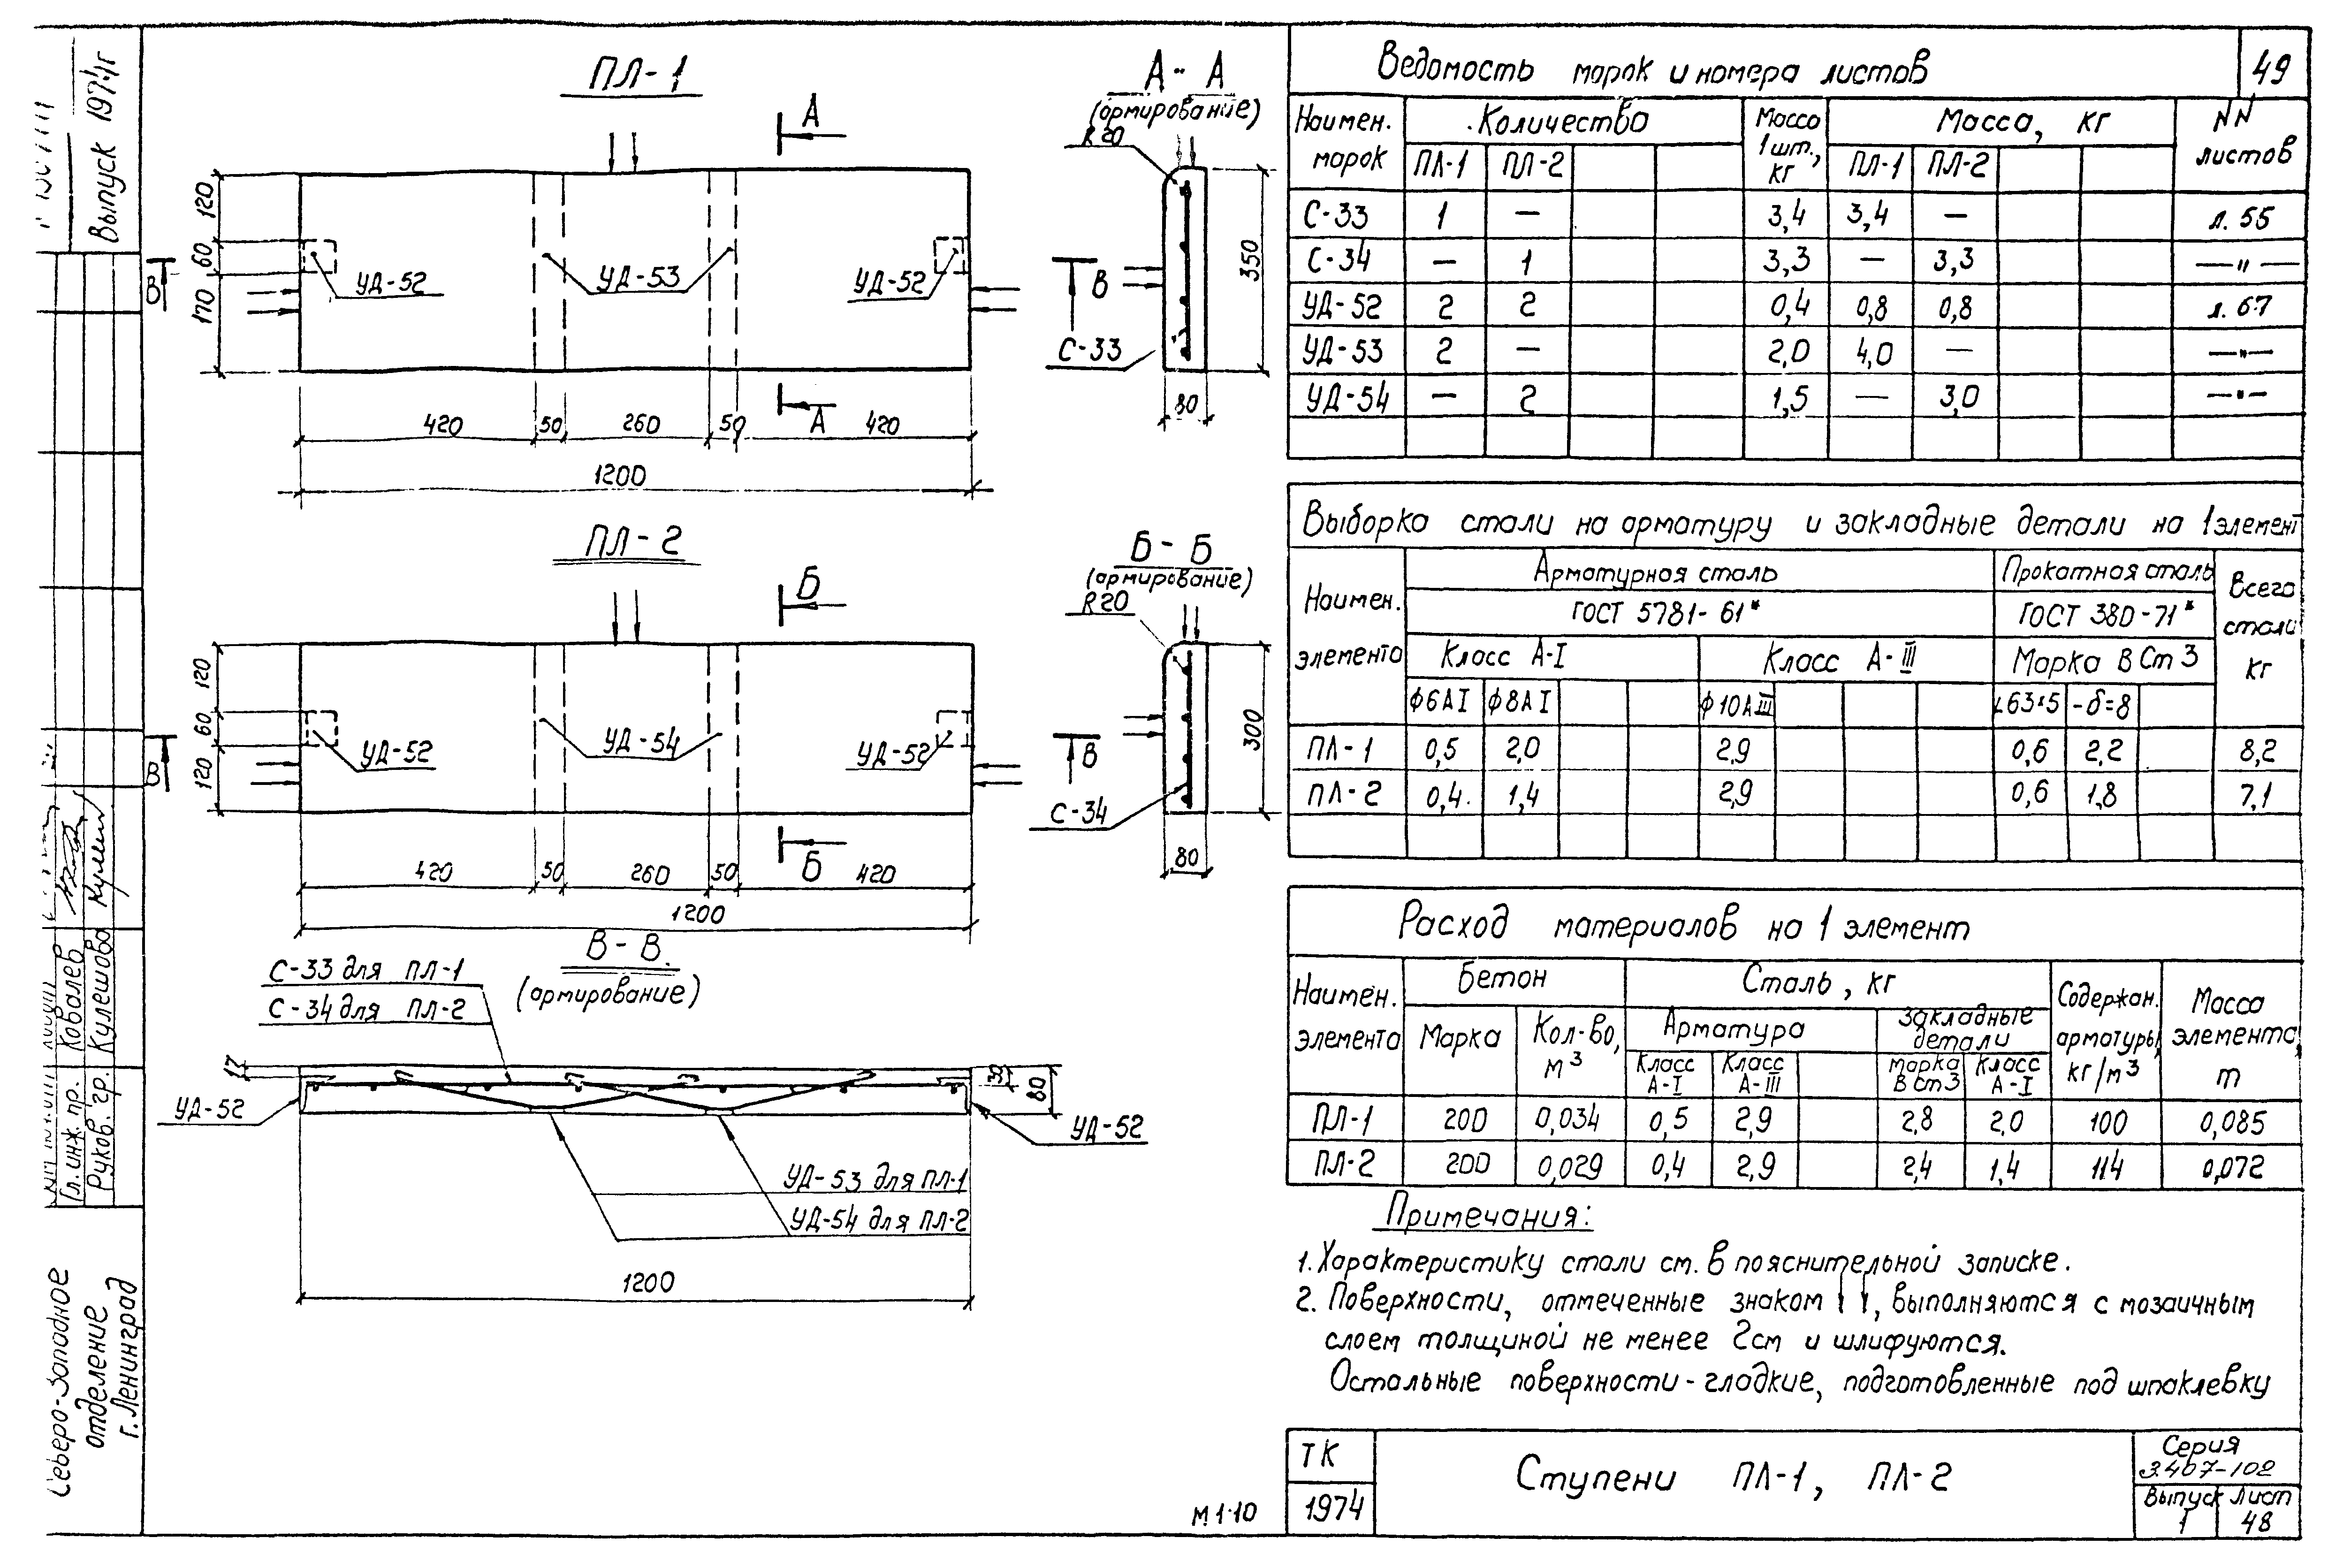 ПЛ-1
А
УД-52
УД-53
УД-52
120
60
170
В
А
420
50
260
50
420
1200
А-А
(армирование)
R20
В
С-33
350
80
ПЛ-2
Б
УД-52
УД-54
УД-52
120
60
120
В
Б
420
50
260
50
420
1200
Б-Б
(армирование)
R20
В
С-34
300
80
В-В
(армирование)
С-33 для ПЛ-1
С-34 для ПЛ-2
УД-52
80
УД-52
УД-53 для ПЛ-1
УД-54 для ПЛ-2
1200
М 1:10
Выпуск 1974г
Гл. инж. пр. Ковалев
Руков. гр. Кулешова
Северо-Западное
отделение
г. Ленинград
Ведомость марок и номера листов
49
Наимен. марок Количество Масса 1 шт., кг Масса, кг NN листов
ПЛ-1 ПЛ-2 ПЛ-1 ПЛ-2
С-33 1 — 3,4 3,4 — л. 55
С-34 — 1 3,3 — 3,3 —"—
УД-52 2 2 0,4 0,8 0,8 л. 67
УД-53 2 — 2,0 4,0 — —"—
УД-54 — 2 1,5 — 3,0 —"—
Выборка стали на арматуру и закладные детали на 1 элемент
Наимен. элемента Арматурная сталь Прокатная сталь Всего стали кг
ГОСТ 5781-61* ГОСТ 380-71*
Класс А-I Класс А-III Марка В Ст 3
ф6АI ф8АI ф10АIII L63×5 -δ=8
ПЛ-1 0,5 2,0 2,9 0,6 2,2 8,2
ПЛ-2 0,4 1,4 2,9 0,6 1,8 7,1
Расход материалов на 1 элемент
Наимен. элемента Бетон Сталь, кг Содержан. арматуры, кг/м³ Масса элемента, т
Марка Кол-во, м³ Арматура Закладные детали
Класс А-I Класс А-III Марка В Ст 3 Класс А-I
ПЛ-1 200 0,034 0,5 2,9 2,8 2,0 100 0,085
ПЛ-2 200 0,029 0,4 2,9 2,4 1,4 114 0,072
Примечания:
1. Характеристику стали см. в пояснительной записке.
2. Поверхности, отмеченные знаком ↓↓, выполняются с мозаичным
слоем толщиной не менее 2см и шлифуются.
Остальные поверхности - гладкие, подготовленные под шпаклевку
ТК
1974
Ступени ПЛ-1, ПЛ-2
Серия
3.407-102
Выпуск Лист
1 48